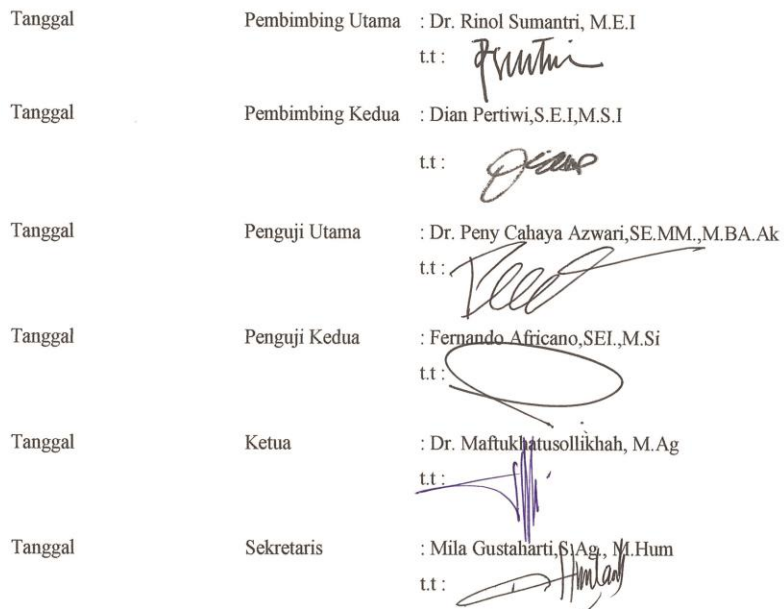 Tanggal Pembimbing Utama : Dr. Rinol Sumantri, M.E.I
t.t :
Tanggal Pembimbing Kedua : Dian Pertiwi,S.E.I,M.S.I
t.t :
Tanggal Penguji Utama : Dr. Peny Cahaya Azwari,SE.MM.,M.BA.Ak
t.t :
Tanggal Penguji Kedua : Fernando Africano,SEI.,M.Si
t.t :
Tanggal Ketua : Dr. Maftukhatusollikhah, M.Ag
t.t :
Tanggal Sekretaris : Mila Gustaharti,S.Ag., M.Hum
t.t :